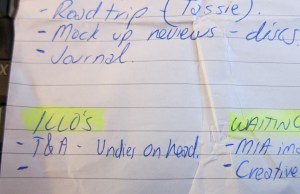 - Roadtrip (Tassie).
- Mock up reviews - discs
- Journal.
ILLO'S
- T&A - Undies on head.
-
WAITING
- MIA ima
- Creative